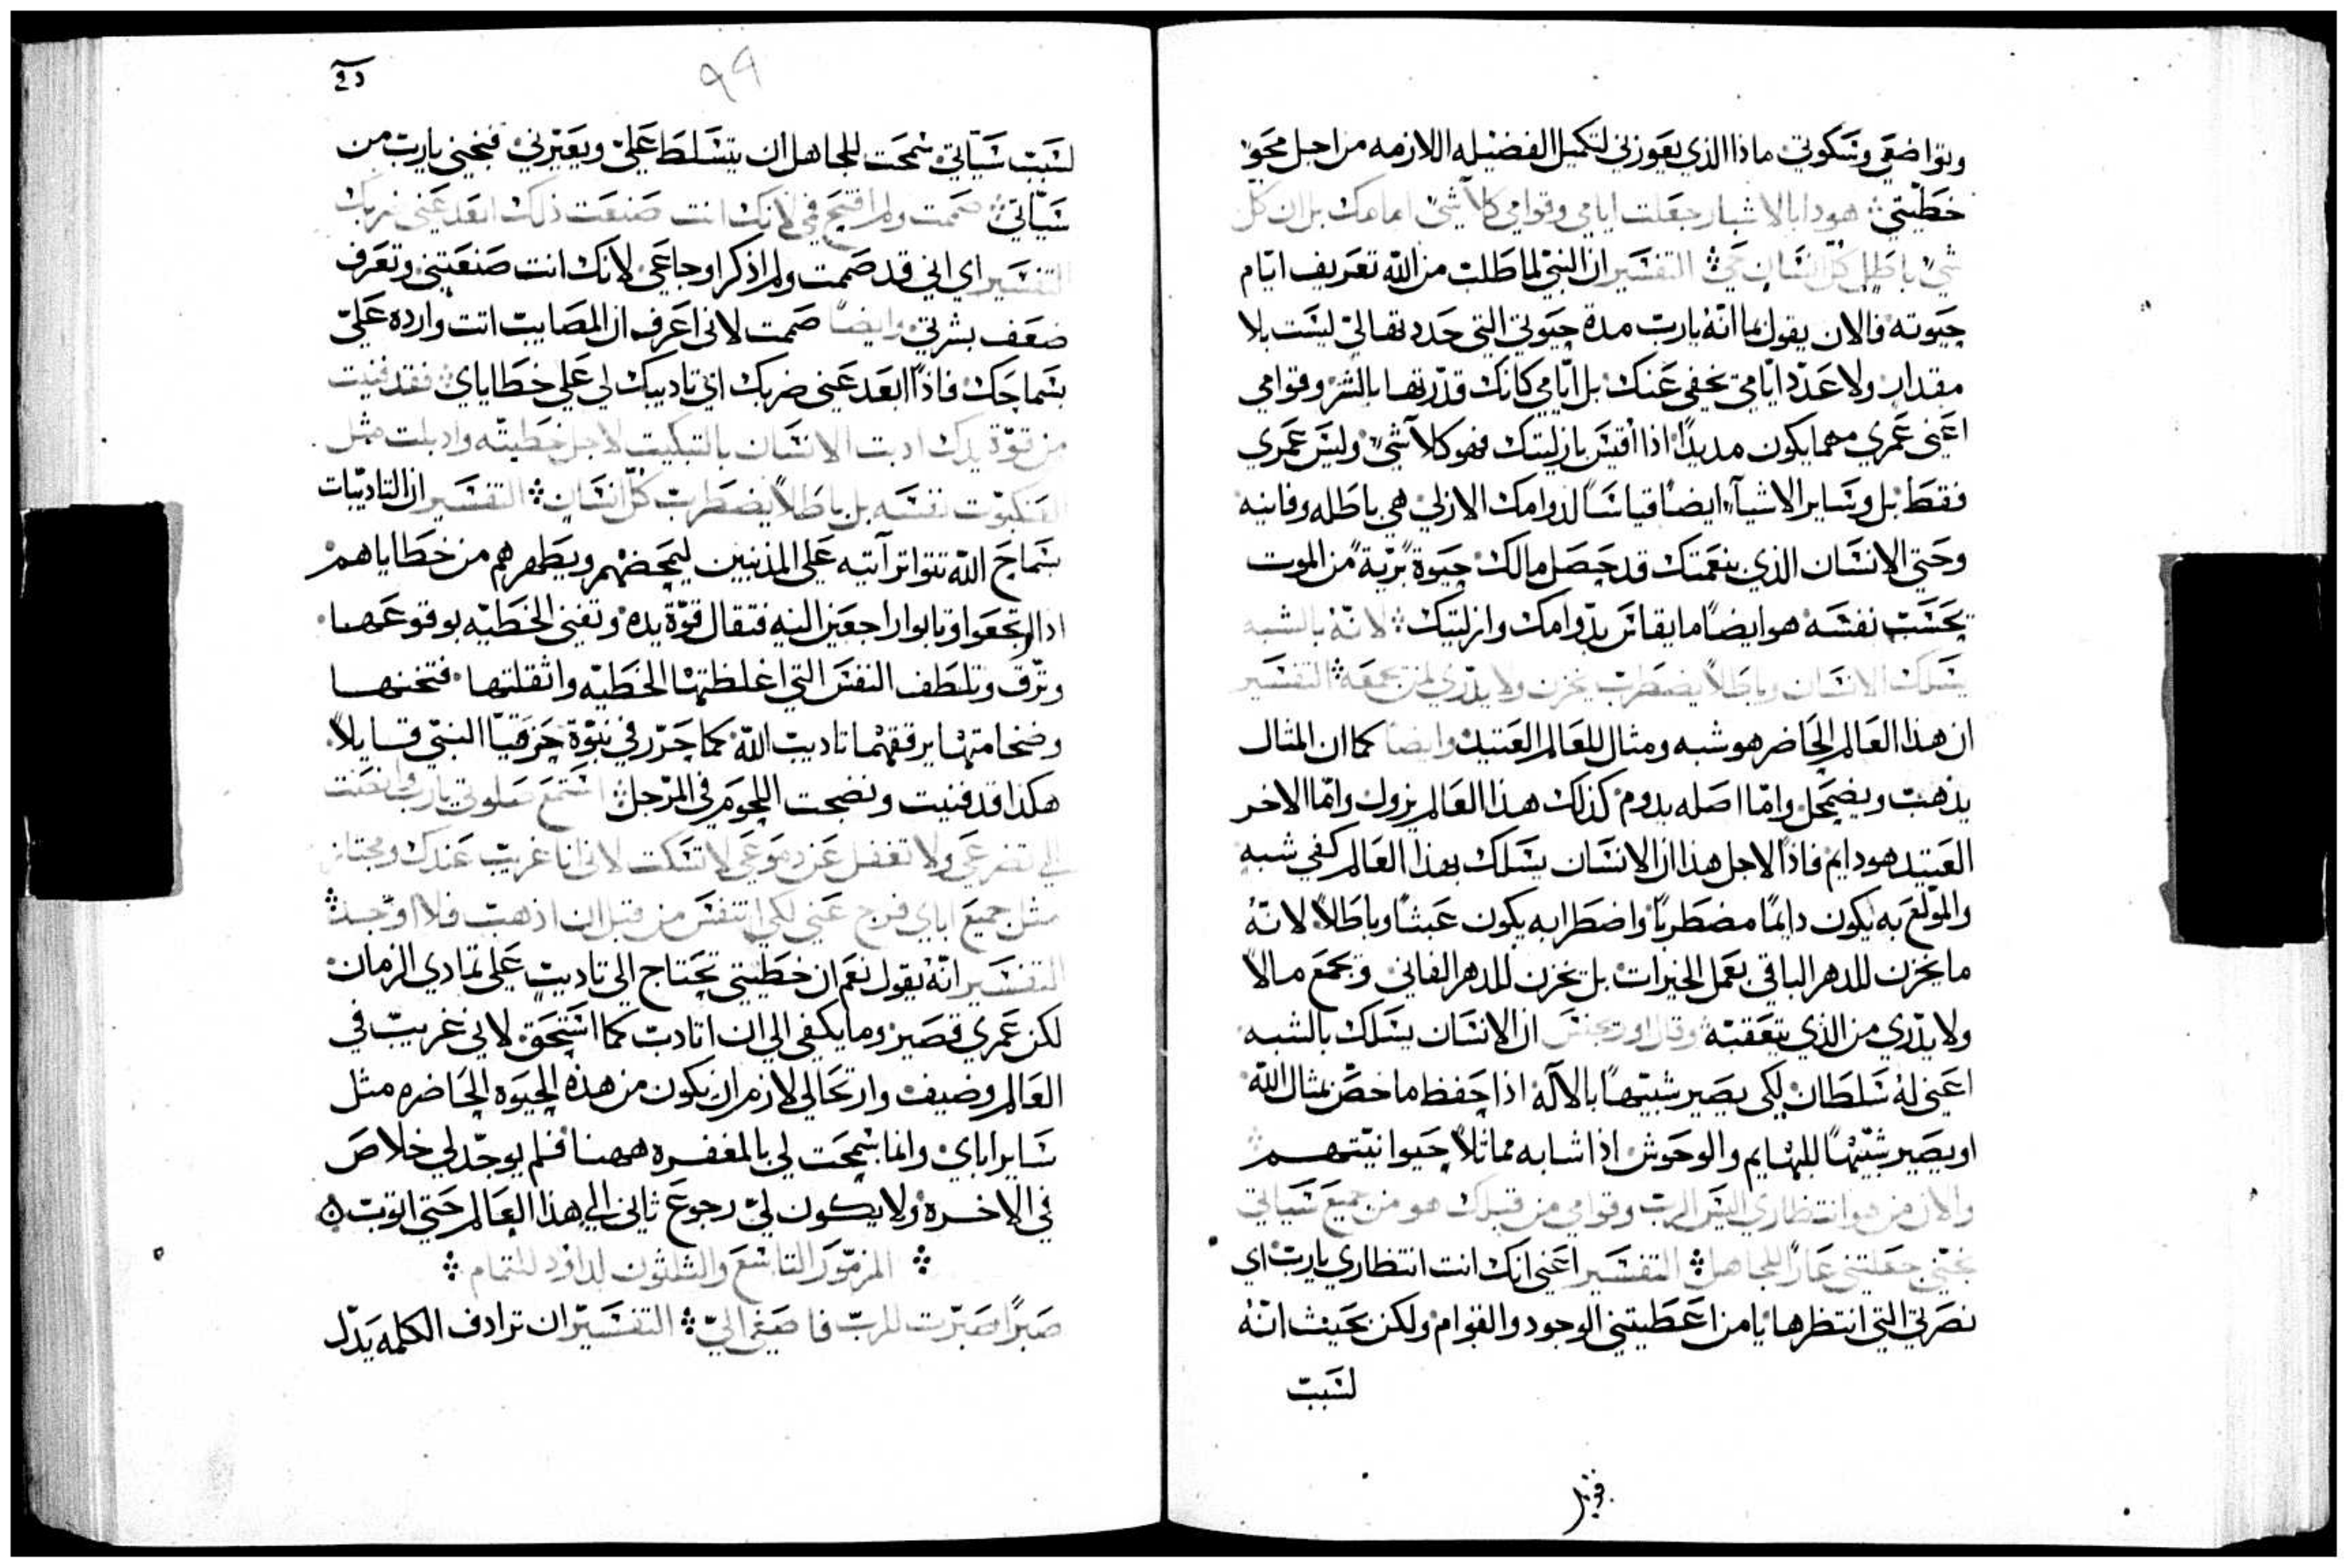 وتواضعي وسكوتي ماذا الذي يعوزني لتكميل الفضيله اللازمه من اجل محو
خطيتي هوذا بالاشبار جعلت ايامي وقوامي كلا شي امامك بل ان كل
شي باطل كل انسان حي التفسير ان النبي لما طلب من الله تعريف ايام
حيوته فالان يقول بما انه يارب مدة حيوتي التي حددتها لي ليست بلا
مقدار ولا عدد ايامي تخفي عنك بل ايامي كانك قدرتها بالشبر وقوامي
اعني عمري مهما يكون مديدا اذا اقيس بازليتك فهو كلا شي وليس عمري
فقط بل وساير الاشيآء ايضا قياسا لدوامك الازلي هي باطله وفانيه
وحتي الانسان الذي بنعمتك قد حصل مالك حيوة برية من الموت
تحسب نفسه هو ايضا ما يقاس بدوامك وازليتك لانه بالشبه
يسلك الانسان وباطلا يضطرب يخزن ولا يدري لمن يجمعه التفسير
ان هذا العالم الحاضر هو شبه ومثال للعالم العتيد وايضا كما ان المثال
يذهب ويضمحل واما اصله يدوم كذلك هذا العالم يزول واما الاخر
العتيد هو دايم فاذا لاجل هذا ان الانسان يسلك بهذا العالم كفي شبه
والمولع به يكون دايما مضطربا واضطرابه يكون عبثا وباطلا لانه
ما يخزن للدهر الباقي بعمل الخيرات بل يخزن للدهر الفاني ويجمع مالا
ولا يدري من الذي يتعقبه وقال اوريجنس ان الانسان يسلك بالشبه
اعني له سلطان لكي يصير شبيها بالاله اذا حفظ ما خص بمثال الله
او يصير شبيها للبهايم والوحوش اذا شابه مماثلا حيوانيتهم
والان من هو انتظاري اليس الرب وقوامي من قبلك هو من جميع سياتي
نجني جعلتني عارا للجاهل التفسير اعني انك انت انتظاري يارب اي
نصرتي التي انتظرها يا من اعطيتني الوجود والقوام ولكن بحيث انه
لسبب
٩٩
لسبب سياتي سمحت للجاهل ان يتسلط علي ويعيرني فنجني يارب من
سياتي صممت ولم افتح فمي لانك انت صنعت ذلك ابعد عني ضربك
التفسير اي اني قد صممت ولم اذكر اوجاعي لانك انت صنعتني وتعرف
ضعف بشرتي وايضا صممت لاني اعرف ان المصايب اتت وارده علي
بسماحك فاذا ابعد عني ضربك اي تاديبك لي علي خطاياي فقد فنيت
من قوة يدك ادبت الانسان بالتبكيت لاجل خطيته واذبلت مثل
العنكبوت نفسه بل باطلا يضطرب كل انسان التفسير ان التاديبات
بسماح الله تتواتر آتيه علي المذنبين ليمحضهم ويطهرهم من خطاياهم
اذا ارتجعوا وتابوا راجعين اليه فتقال قوة يده وتفني الخطيه بوقوعها
وترق وتلطف النفس التي اغلظتها الخطيه واثقلتها فتخنها
وضخامتها يرققهما تاديب الله كما حرر في نبوة حزقيا النبي قايلا
هكذا قد فنيت ونضجت اللحوم في المرجل استمع صلوتي يارب وانصت
الي تضرعي ولا تغفل عن دموعي لا تسكت لاني انا غريب عندك ومجتاز
مثل جميع اباي فرج عني لكي اتنفس من قبل ان اذهب فلا اوجد
التفسير انه يقول نعم ان خطيتي تحتاج الي تاديب علي تمادي الزمان
لكن عمري قصير وما يكفي الي ان اتادب كما استحق لاني غريب في
العالم وضيف وارتحالي لازم ان يكون من هذه الحيوه الحاضره مثل
ساير اباي وانما سمحت لي بالمغفره ههنا فلم يوجد لي خلاص
في الاخره ولا يكون لي رجوع ثاني الي هذا العالم حتي اتوب
المزمور التاسع والثلثون لداود للتمام
صبرا صبرت للرب فاصغي الي التفسير ان ترادف الكلمه يدل